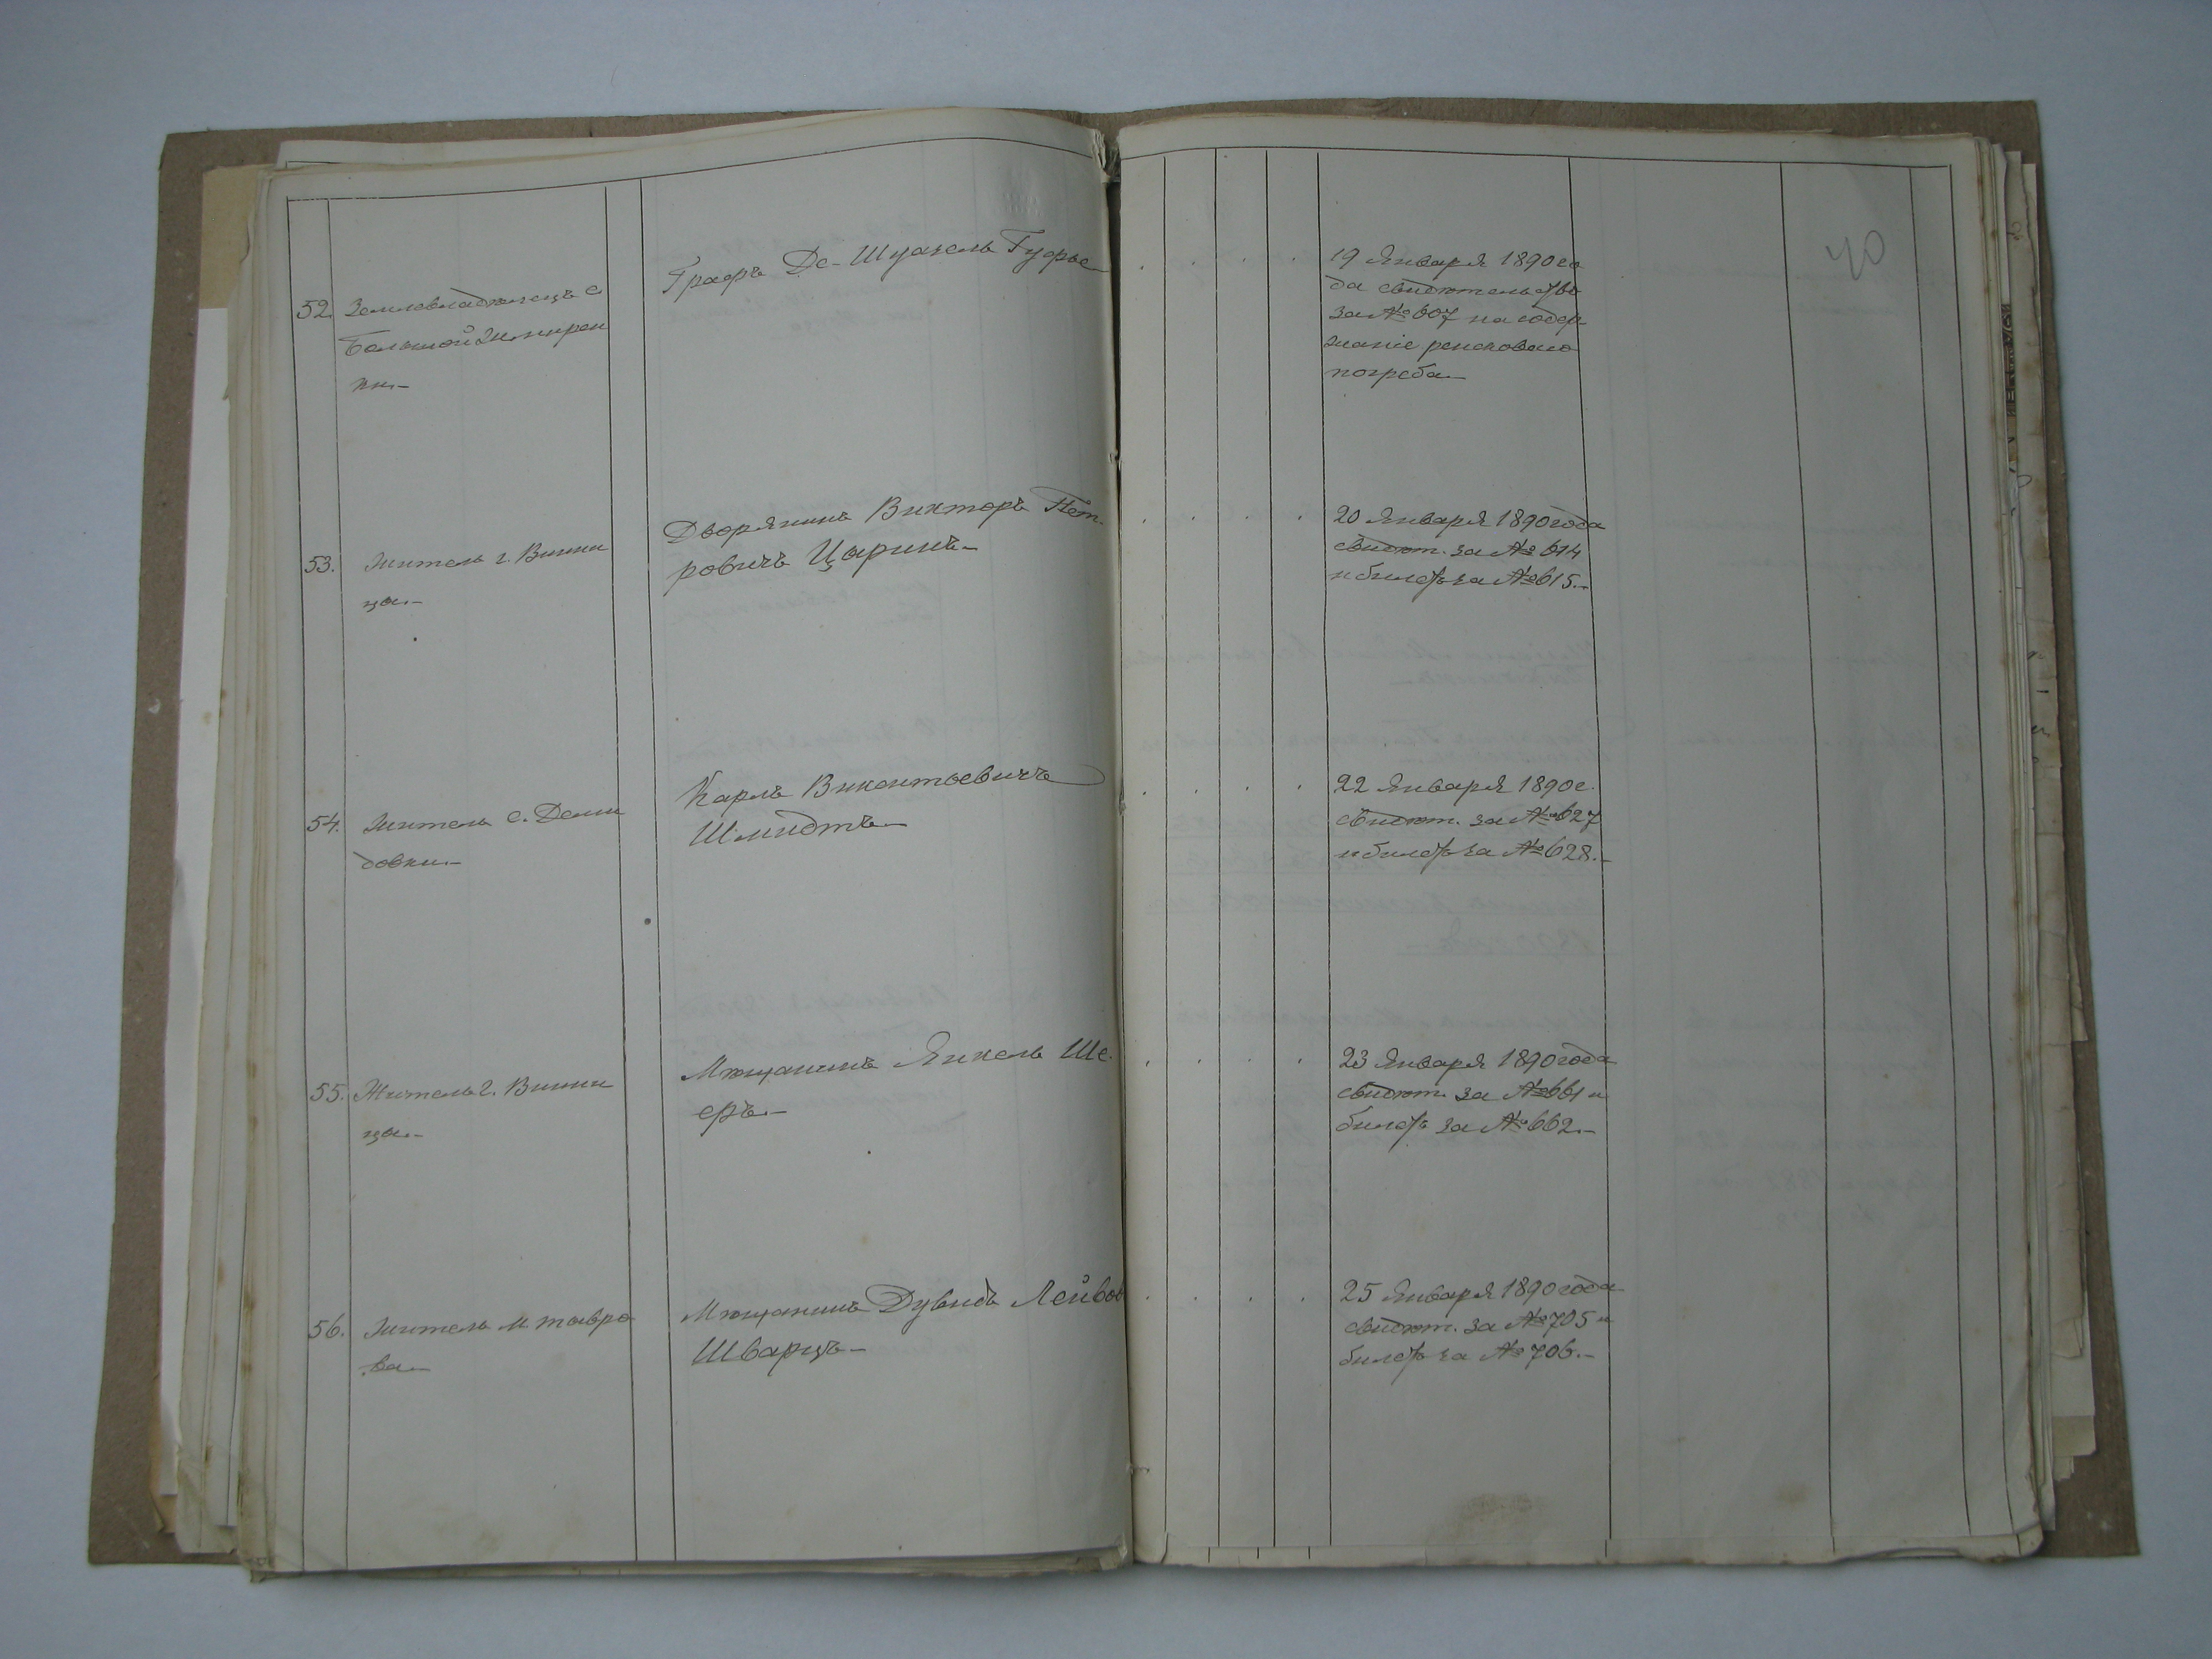 40
52. Землевладѣлецъ с.
Большой Жмирен
ки.–
Графъ Де-Шуазель Гуфье
19 Января 1890 го
да свидѣтельство
за № 607 на содер-
жаніе ренсковаго
погреба.–
53. Житель г. Винни
цы.–
Дворянинъ Викторъ Пет-
ровичъ Царинъ.–
20 Января 1890 года
свидѣт. за № 614
и билетъ за № 615.–
54. Житель с. Деми
довки.–
Карлъ Викентьевичъ
Шмидтъ.–
22 Января 1890 г.
свидѣт. за № 627
и билетъ за № 628.–
55. Житель г. Винни
цы.–
Мѣщанинъ Янкель Ше-
еръ.–
23 Января 1890 года
свидѣт. за № 661 и
билетъ за № 662.–
56. Житель м. Тывро
ва.–
Мѣщанинъ Дувидъ Лейбов
Шварцъ.–
25 Января 1890 года
свидѣт. за № 705 и
билетъ за № 706.–